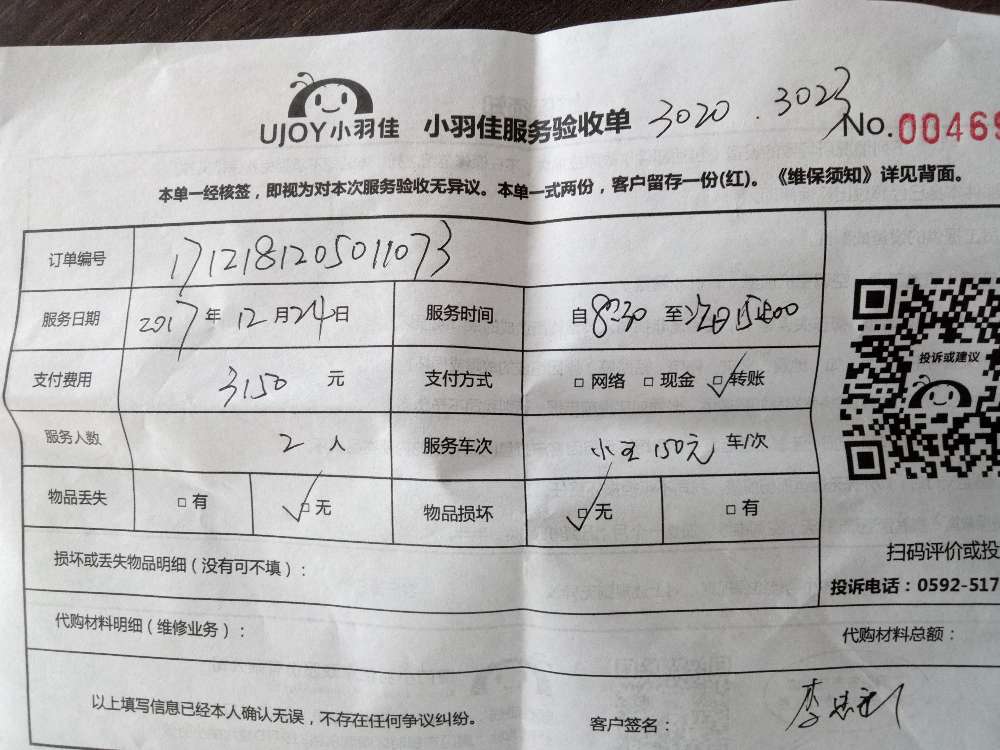 UJOY小羽佳 小羽佳服务验收单 3020 . 3023 No.00469
本单一经核签，即视为对本次服务验收无异议。本单一式两份，客户留存一份(红)。《维保须知》详见背面。
订单编号 171218120501073
服务日期 2017 年 12 月 24 日 服务时间 自 8:30 至 次日
支付费用 3150 元 支付方式 □ 网络 □ 现金 ☑ 转账
服务人数 2 人 服务车次 小王 150元 车/次
物品丢失 □ 有 ☑ 无 物品损坏 ☑ 无 □ 有
投诉或建议
损坏或丢失物品明细（没有可不填）：
扫码评价或投
投诉电话：0592-517
代购材料明细（维修业务）：
代购材料总额：
以上填写信息已经本人确认无误，不存在任何争议纠纷。
客户签名：